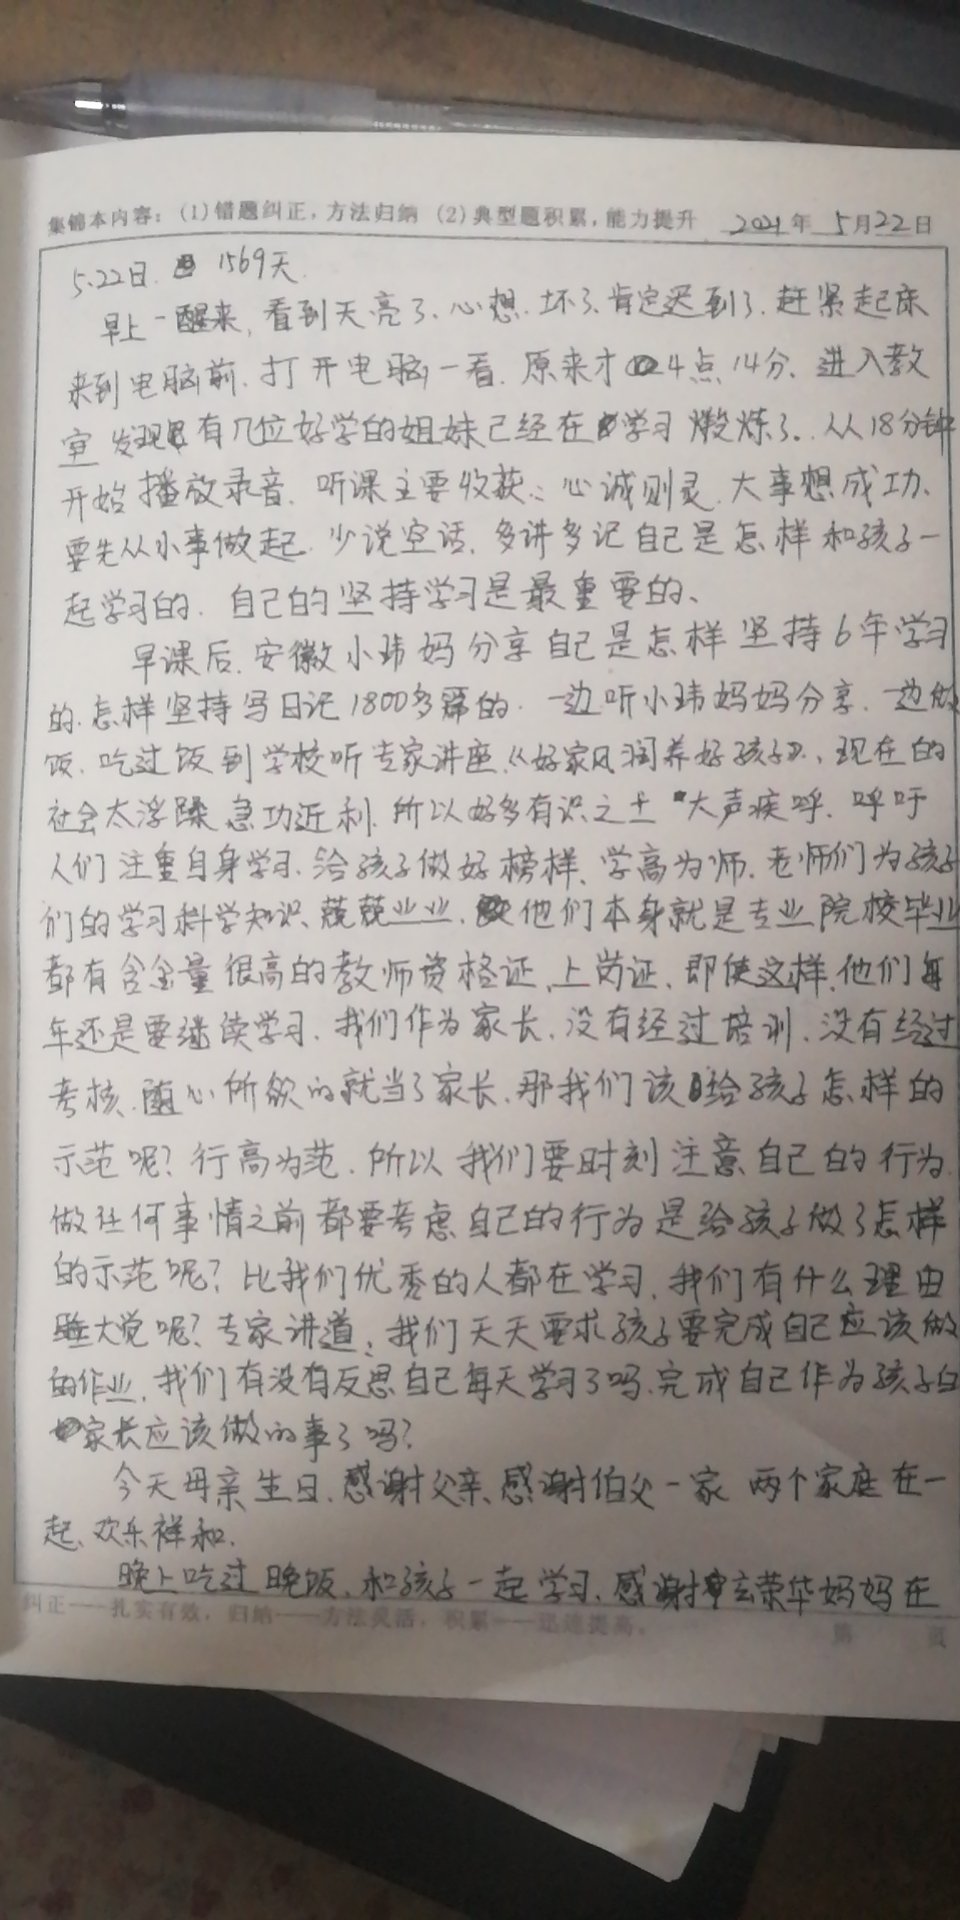 集锦本内容：(1)错题纠正，方法归纳 (2)典型题积累，能力提升 2021年 5月22日
5.22日. 1569天.
早上一醒来，看到天亮了、心想.坏了.肯定迟到了.赶紧起床
来到电脑前.打开电脑一看.原来才4点14分、进入教
室发现有几位好学的姐妹已经在学习煅炼了..从18分钟
开始播放录音.听课主要收获：心诚则灵.大事想成功、
要先从小事做起.少说空话.多讲多记自己是怎样和孩子一
起学习的.自己的坚持学习是最重要的、
早课后.安徽小玮妈分享自己是怎样坚持6年学习
的.怎样坚持写日记1800多篇的.一边听小玮妈妈分享.一边做
饭.吃过饭到学校听专家讲座《好家风润养好孩子》、现在的
社会太浮躁急功近利.所以好多有识之士大声疾呼.呼吁
人们注重自身学习.给孩子做好榜样、学高为师.老师们为孩子
们的学习科学知识兢兢业业.他们本身就是专业院校毕业
都有含金量很高的教师资格证、上岗证.即使这样.他们每
年还是要继续学习.我们作为家长.没有经过培训.没有经过
考核.随心所欲的就当了家长.那我们该给孩子怎样的
示范呢？行高为范.所以我们要时刻注意自己的行为.
做任何事情之前都要考虑自己的行为是给孩子做了怎样
的示范呢？比我们优秀的人都在学习.我们有什么理由
睡大觉呢？专家讲道：我们天天要求孩子要完成自己应该做
的作业.我们有没有反思自己每天学习了吗.完成自己作为孩子的
家长应该做的事了吗？
今天母亲生日.感谢父亲、感谢伯父一家 两个家庭在一
起、欢乐祥和.
晚上吃过晚饭、和孩子一起学习.感谢荣华妈妈在
纠正——扎实有效，归纳——方法灵活，积累——迅速提高。 第 页